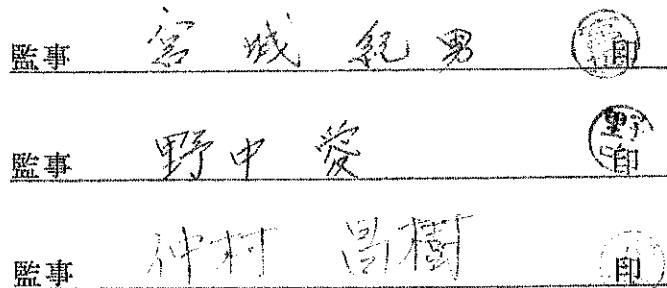 監事 宮城 紀男 印
監事 野中 愛 印
監事 仲村 昌樹 印